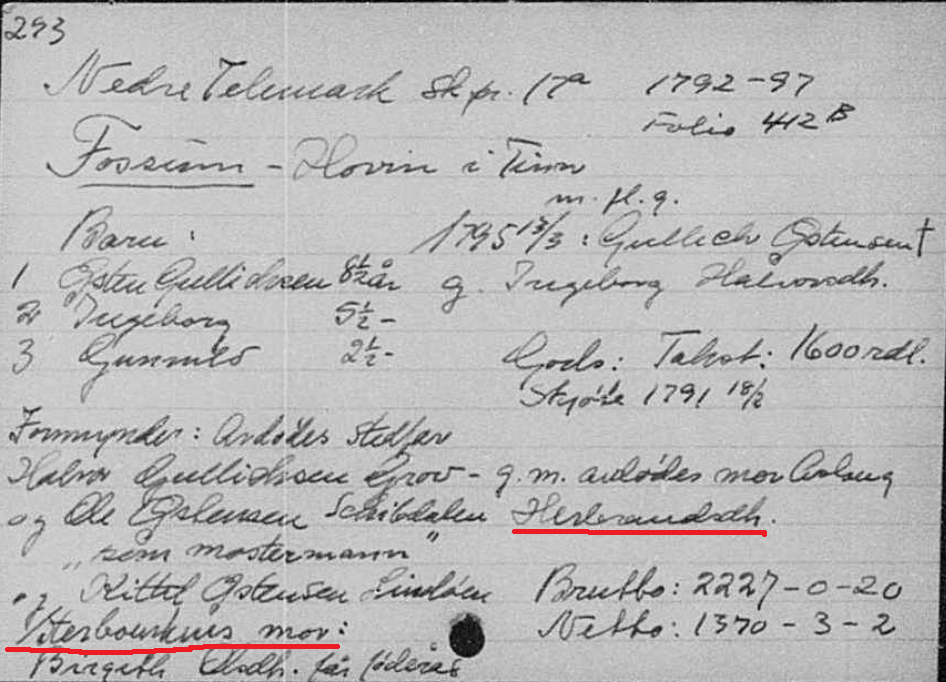 293
Nedre Telemark Skpr. 17a 1792-97
Folio 412 B
Fossum - Hovin i Tinn
m. fl. g.
Barn: 1795 13/3: Gullich Østensen †
1 Østen Gullichsen 8½ år g. Ingeborg Halvorsdh.
2 Ingeborg 5½-
3 Gunnild 2½- Gods: Takst: 1600 rdl.
Skjøte 1791 18/2
Formynder: Avdødes stedfar
Halvor Gullichsen Grov - g.m. avdødes mor Aslaug
og Ole Østensen Herbrandsdh.
"som mostermann"
og Kittil Østensen Brutto: 2227-0-20
Sterboenkens mor: Netto: 1370-3-2
Birgith Olsdh. får føderåd